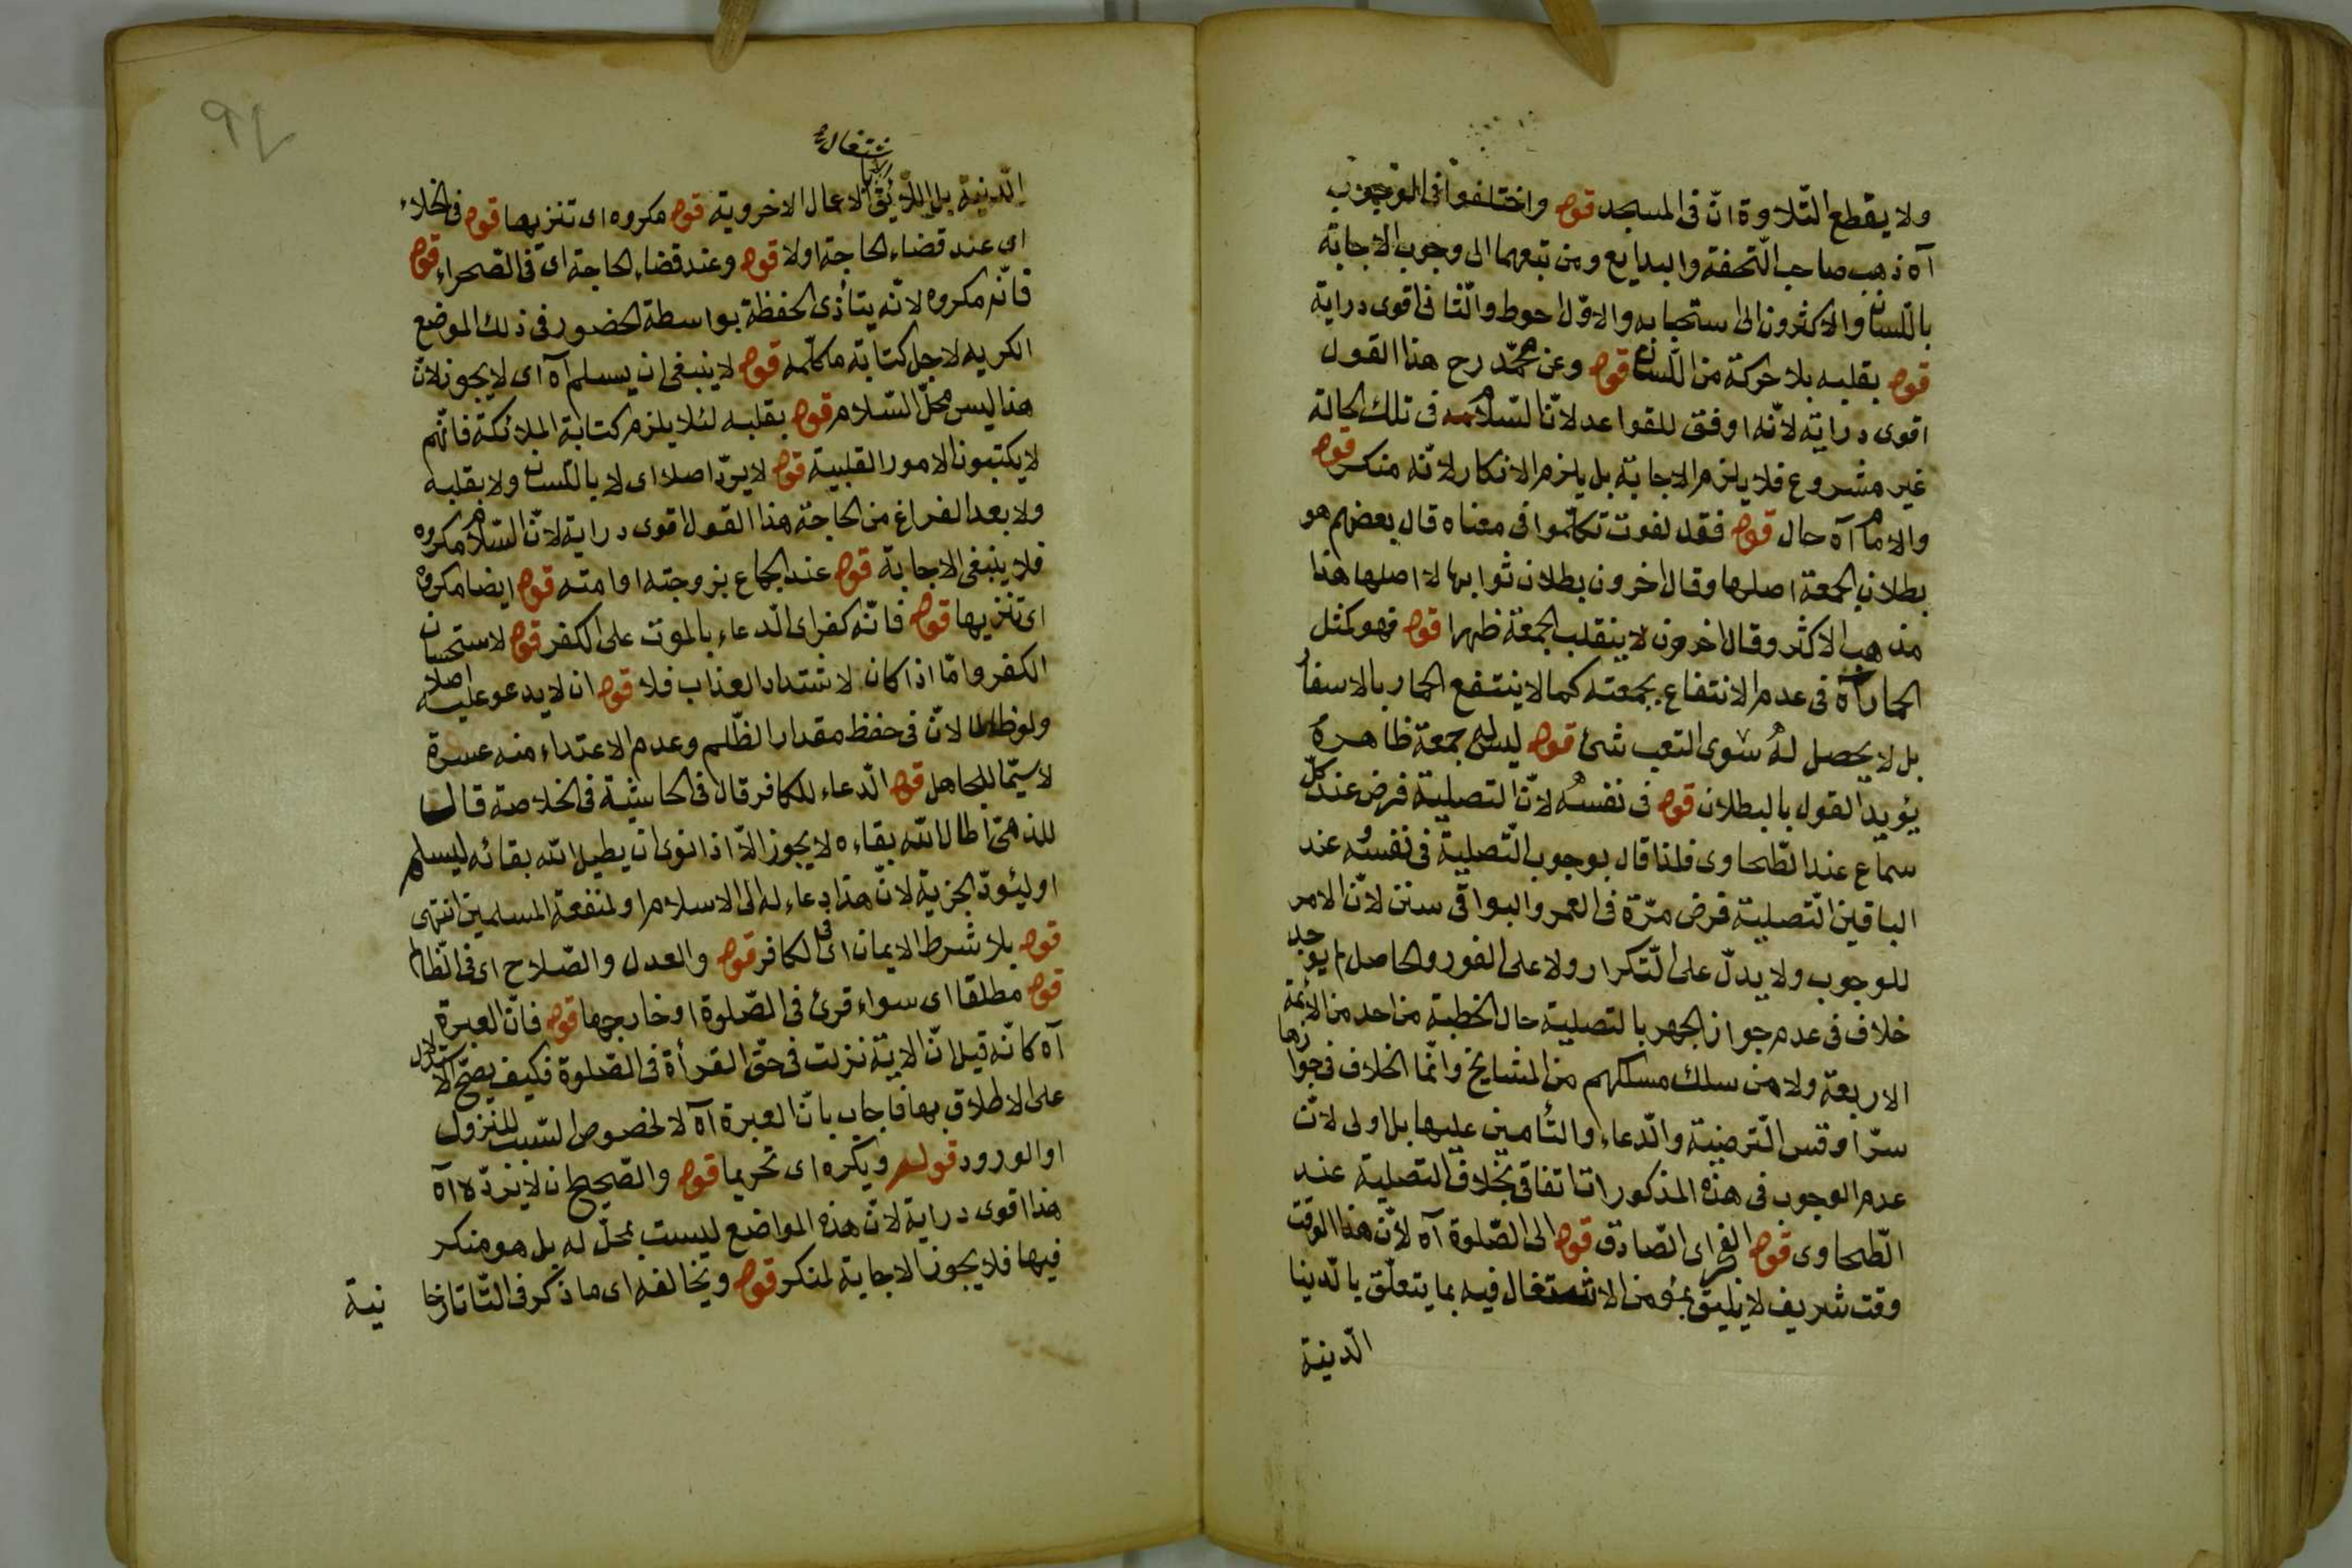 ولا يقطع التّلاوة انّ فى المسجد قوله واختلفوا فى الوجوب
آه ذهب صاحب التّحفة والبدايع ومن تبعهما الى وجوب الاجابة
باللّسان والاكثرون الى استحبابه والاوّل احوط والثّانى اقوى دراية
قوله بقلبه بلا حركة من اللّسان قوله وعن محمّد رح هذا القول
اقوى دراية لانّه اوفق للقواعد لانّ السّلام فى تلك الحالة
غير مشروع فلا يلزم الاجابة بل يلزم الانكار لانّه منكر قوله
والامام آه حال قوله فقد لغوت تكلّموا فى معناه قال بعضهم هو
بطلان الجمعة اصلها وقال اخرون بطلان ثوابها لا اصلها هذا
مذهب الاكثر وقال اخرون لا ينقلب الجمعة ظهرا قوله فهو كمثل
الحمار آه فى عدم الانتفاع بجمعته كما لا ينتفع الحمار بالاسفار
بل لا يحصل له سوى التعب شئ قوله ليس له جمعة ظاهره
يؤيد القول بالبطلان قوله فى نفسه لانّ التصلية فرض عند كلّ
سماع عند الطّحاوى فلذا قال بوجوب التّصلية فى نفسه وعند
الباقين التّصلية فرض مرّة فى العمر والبواقى سنن لانّ الامر
للوجوب ولا يدلّ على التّكرار ولا على الفور والحاصل لم يوجد
خلاف فى عدم جواز الجهر بالتصلية حال الخطبة من احد من الائمة
الاربعة ولا من سلك مسلكهم من المشايخ وانّما الخلاف فى جوازها
سرّا وقس التّرضية والدّعاء والتّأمين عليها بل اولى لانّ
عدم الوجوب فى هذه المذكورات اتفاقى بخلاف التصلية عند
الطّحاوى قوله الفجر اى الصّادق قوله الى الصّلوة آه لانّ هذا الوقت
وقت شريف لا يليق بمؤمن الاشتغال فيه بما يتعلّق بالدّينا
الدّينة
الدّنية بل اللّائق الاشتغال بالاعمال الاخروية قوله مكروه اى تنزيها قوله فى الخلاء
اى عند قضاء الحاجة اولا قوله وعند قضاء الحاجة اى فى الصّحراء قوله
فانّه مكروه لانّه يتأذى الحفظة بواسطة الحضور فى ذلك الموضع
الكريه لاجل كتابة مكلّمه قوله لا ينبغى ان يسلم آه اى لا يجوز لانّ
هذا ليس محلّ السّلام قوله بقلبه لئلا يلزم كتابة الملائكة فانّهم
لا يكتبون الامور القلبية قوله لا يردّ اصلا اى لا باللّسان ولا بقلبه
ولا بعد الفراغ من الحاجة هذا القول اقوى دراية لانّ السّلام مكروه
فلا ينبغى الاجابة قوله عند الجماع بزوجته او امته قوله ايضا مكروه
اى تنزيها قوله فانّه كفر اى الدّعاء بالموت على الكفر قوله لاستحسان
الكفر وامّا اذا كان لاشتداد العذاب فلا قوله ان لا يدعو عليه اصلا
ولو ظالما لانّ فى حفظ مقدار الظّلم وعدم الاعتداء منه عسرة
لا سيّما للجاهل قوله الدّعاء للكافر قال فى الحاشية فى الخلاصة قال
للذمّى اطال الله بقاءه لا يجوز الّا اذا نوى ان يطيل الله بقائه ليسلم
او ليئودّ الجزية لانّ هذا دعاء له الى الاسلام او لمنفعة المسلمين انتهى
قوله بلا شرط الايمان اى فى الكافر قوله والعدل والصّلاح اى فى الظّالم
قوله مطلقا اى سواء قرئ فى الصّلوة او خارجها قوله فانّ العبرة
آه كانّه قيل انّ الاية نزلت فى حقّ القرأة فى الصّلوة فكيف يصحّ الاستدلال
على الاطلاق بها فاجاب بانّ العبرة آه لا لخصوص السّبب للنزول
او الورود قوله ويكره اى تحريما قوله والصّحيح ان لا يردّه آه
هذا اقوى دراية لانّ هذه المواضع ليست بمحلّ له بل هو منكر
فيها فلا يجوز الاجابة لمنكر قوله ويخالفه اى ما ذكر فى التّاتارخا نية